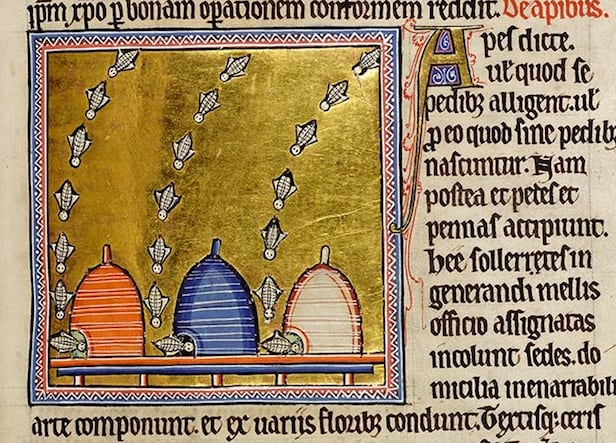 ipm xpo p bonam opationem conformem reddit. De apibus.
Apes dicte.
ul' quod se
pedibꝫ alligent. ul'
ꝓ eo quod sine pedibꝫ
nascuntur. Nam
postea et pedes et
pennas accipiunt.
hee sollertes in
generandi mellis
officio assignatas
incolunt sedes. do
micilia inenarrabili
arte componunt. et ex uariis floribꝫ condunt. Textisqꝫ ceris